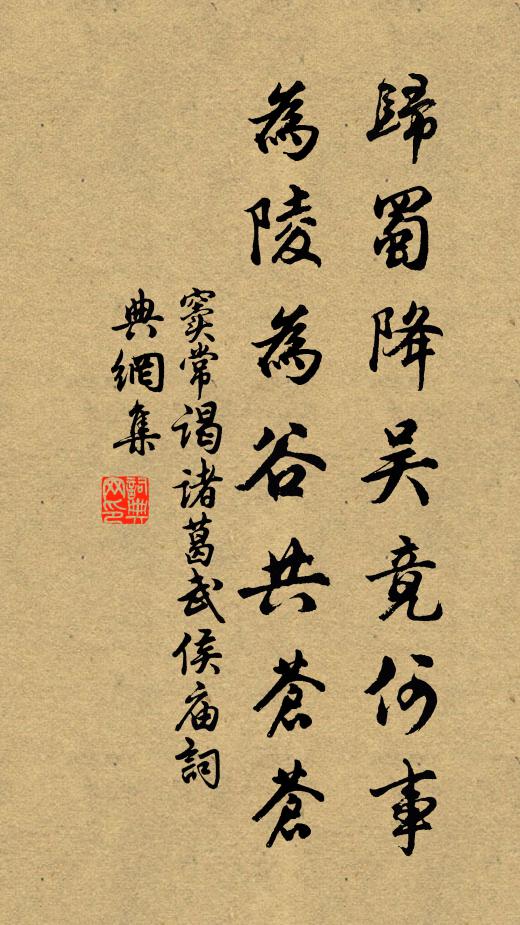 歸蜀降吴竟何事
為陵為谷共蒼蒼
窦常谒诸葛武侯庙詞
典網集
詞典
网印